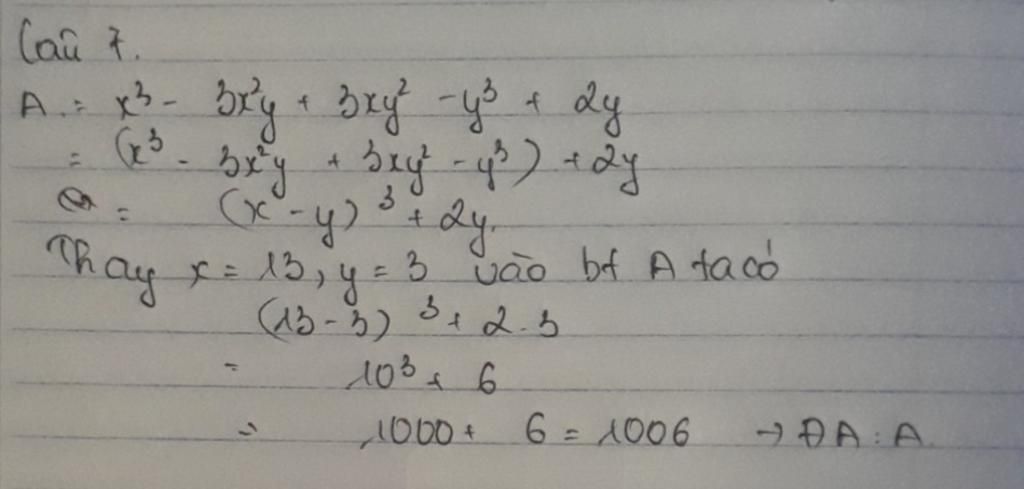 Câu 7.
A = x³ - 3x²y + 3xy² - y³ + 2y
= (x³ - 3x²y + 3xy² - y³) + 2y
= (x - y)³ + 2y.
Thay x = 13, y = 3 vào bt A ta có
(13 - 3)³ + 2.3
= 10³ + 6
= 1000 + 6 = 1006 → ĐA: A